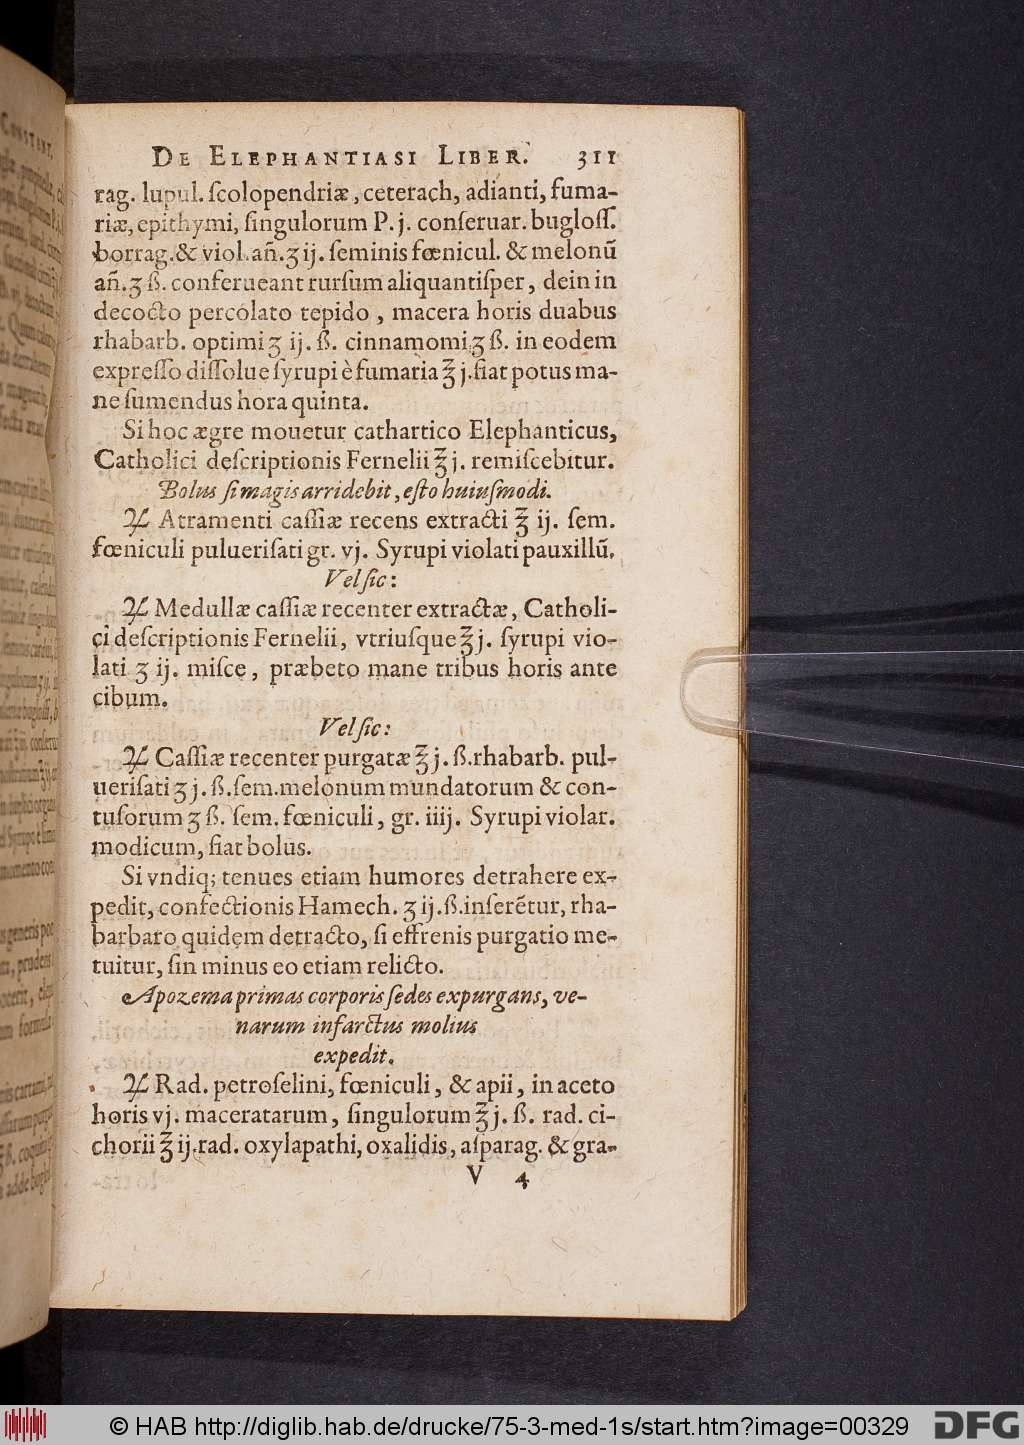 DE ELEPHANTIASI LIBER. 311
rag. lupul. ſcolopendriæ, ceterach, adianti, fuma-
riæ, epithymi, ſingulorum P. j. conſeruar. bugloſſ.
borrag. & viol. añ. ʒ ij. ſeminis fœnicul. & melonũ
añ. ʒ ß. conferueant rurſum aliquantiſper, dein in
decocto percolato tepido, macera horis duabus
rhabarb. optimi ʒ ij. ß. cinnamomi ʒ ß. in eodem
expreſſo diſſolue ſyrupi è fumaria ℥ j. fiat potus ma-
ne ſumendus hora quinta.
Si hoc ægre mouetur cathartico Elephanticus,
Catholici deſcriptionis Fernelii ℥ j. remiſcebitur.
Bolus ſi magis arridebit, eſto huiuſmodi.
♃ Atramenti caſſiæ recens extracti ℥ ij. ſem.
fœniculi pulueriſati gr. vj. Syrupi violati pauxillũ.
Vel ſic:
♃ Medullæ caſſiæ recenter extractæ, Catholi-
ci deſcriptionis Fernelii, vtriuſque ℥ j. ſyrupi vio-
lati ʒ ij. miſce, præbeto mane tribus horis ante
cibum.
Vel ſic:
♃ Caſſiæ recenter purgatæ ℥ j. ß. rhabarb. pul-
ueriſati ʒ j. ß. ſem. melonum mundatorum & con-
tuſorum ʒ ß. ſem. fœniculi, gr. iiij. Syrupi violar.
modicum, fiat bolus.
Si vndiq; tenues etiam humores detrahere ex-
pedit, confectionis Hamech. ʒ ij. ß. inſerẽtur, rha-
barbaro quidem detracto, ſi effrenis purgatio me-
tuitur, ſin minus eo etiam relicto.
Apozema primas corporis ſedes expurgans, ve-
narum infarctus molius
expedit.
♃ Rad. petroſelini, fœniculi, & apii, in aceto
horis vj. maceratarum, ſingulorum ℥ j. ß. rad. ci-
chorii ℥ ij. rad. oxylapathi, oxalidis, aſparag. & gra-
V 4
© HAB http://diglib.hab.de/drucke/75-3-med-1s/start.htm?image=00329
DFG